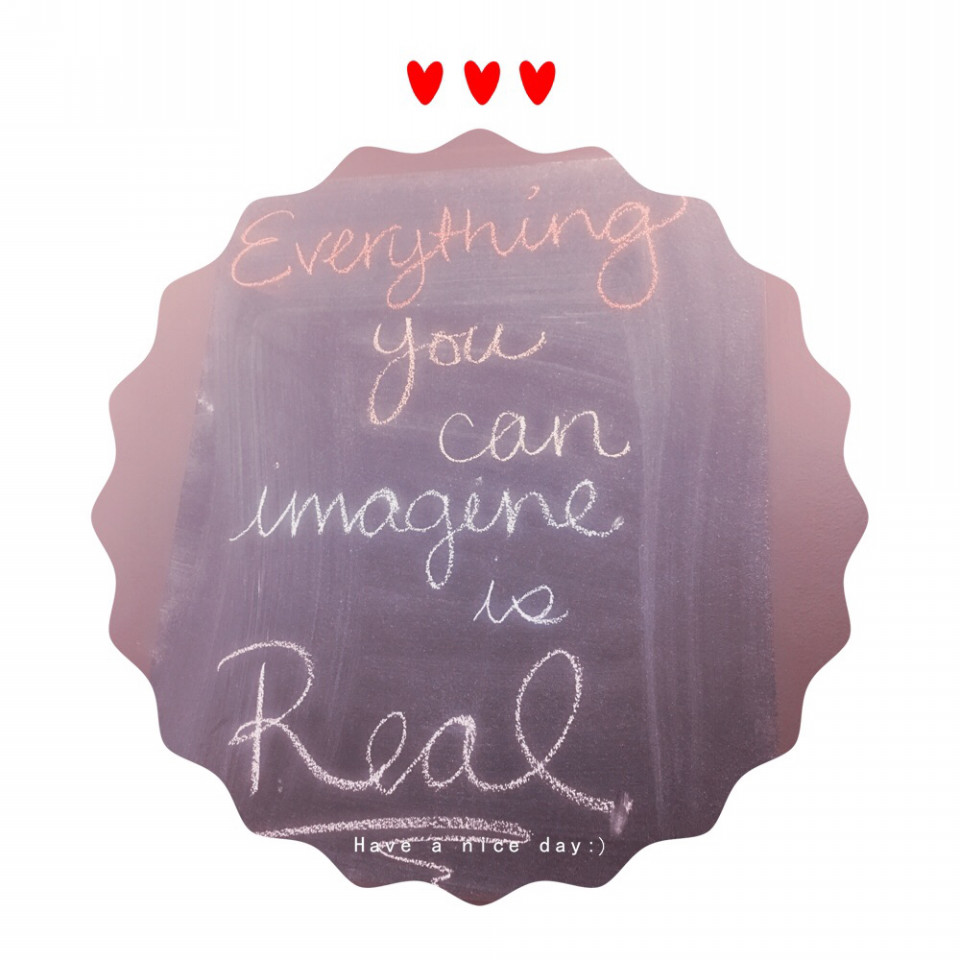 Everything
you
can
imagine
is
Real
Have a nice day:)